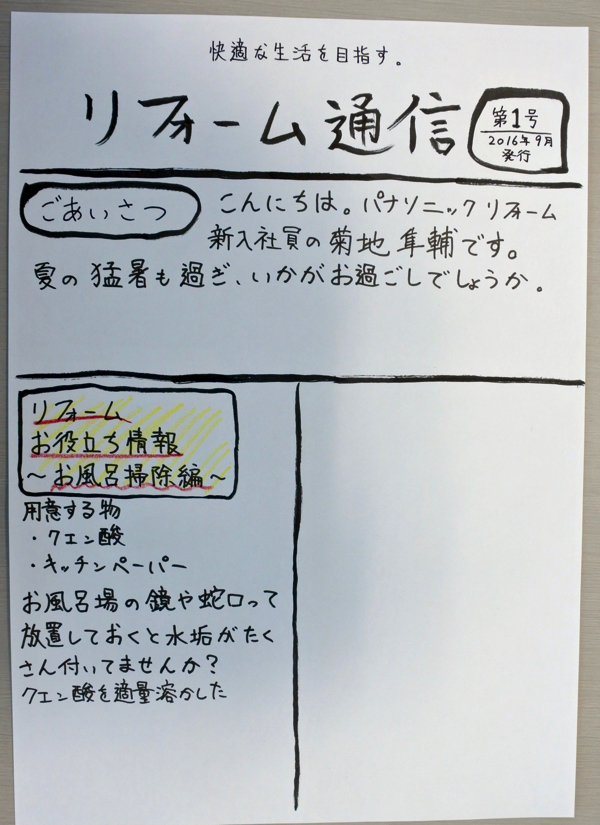 快適な生活を目指す。
リフォーム通信
第1号
2016年9月
発行
ごあいさつ
こんにちは。パナソニックリフォーム
新入社員の菊地隼輔です。
夏の猛暑も過ぎ、いかがお過ごしでしょうか。
リフォーム
お役立ち情報
～お風呂掃除編～
用意する物
・クエン酸
・キッチンペーパー
お風呂場の鏡や蛇口って
放置しておくと水垢がたく
さん付いてませんか？
クエン酸を適量溶かした